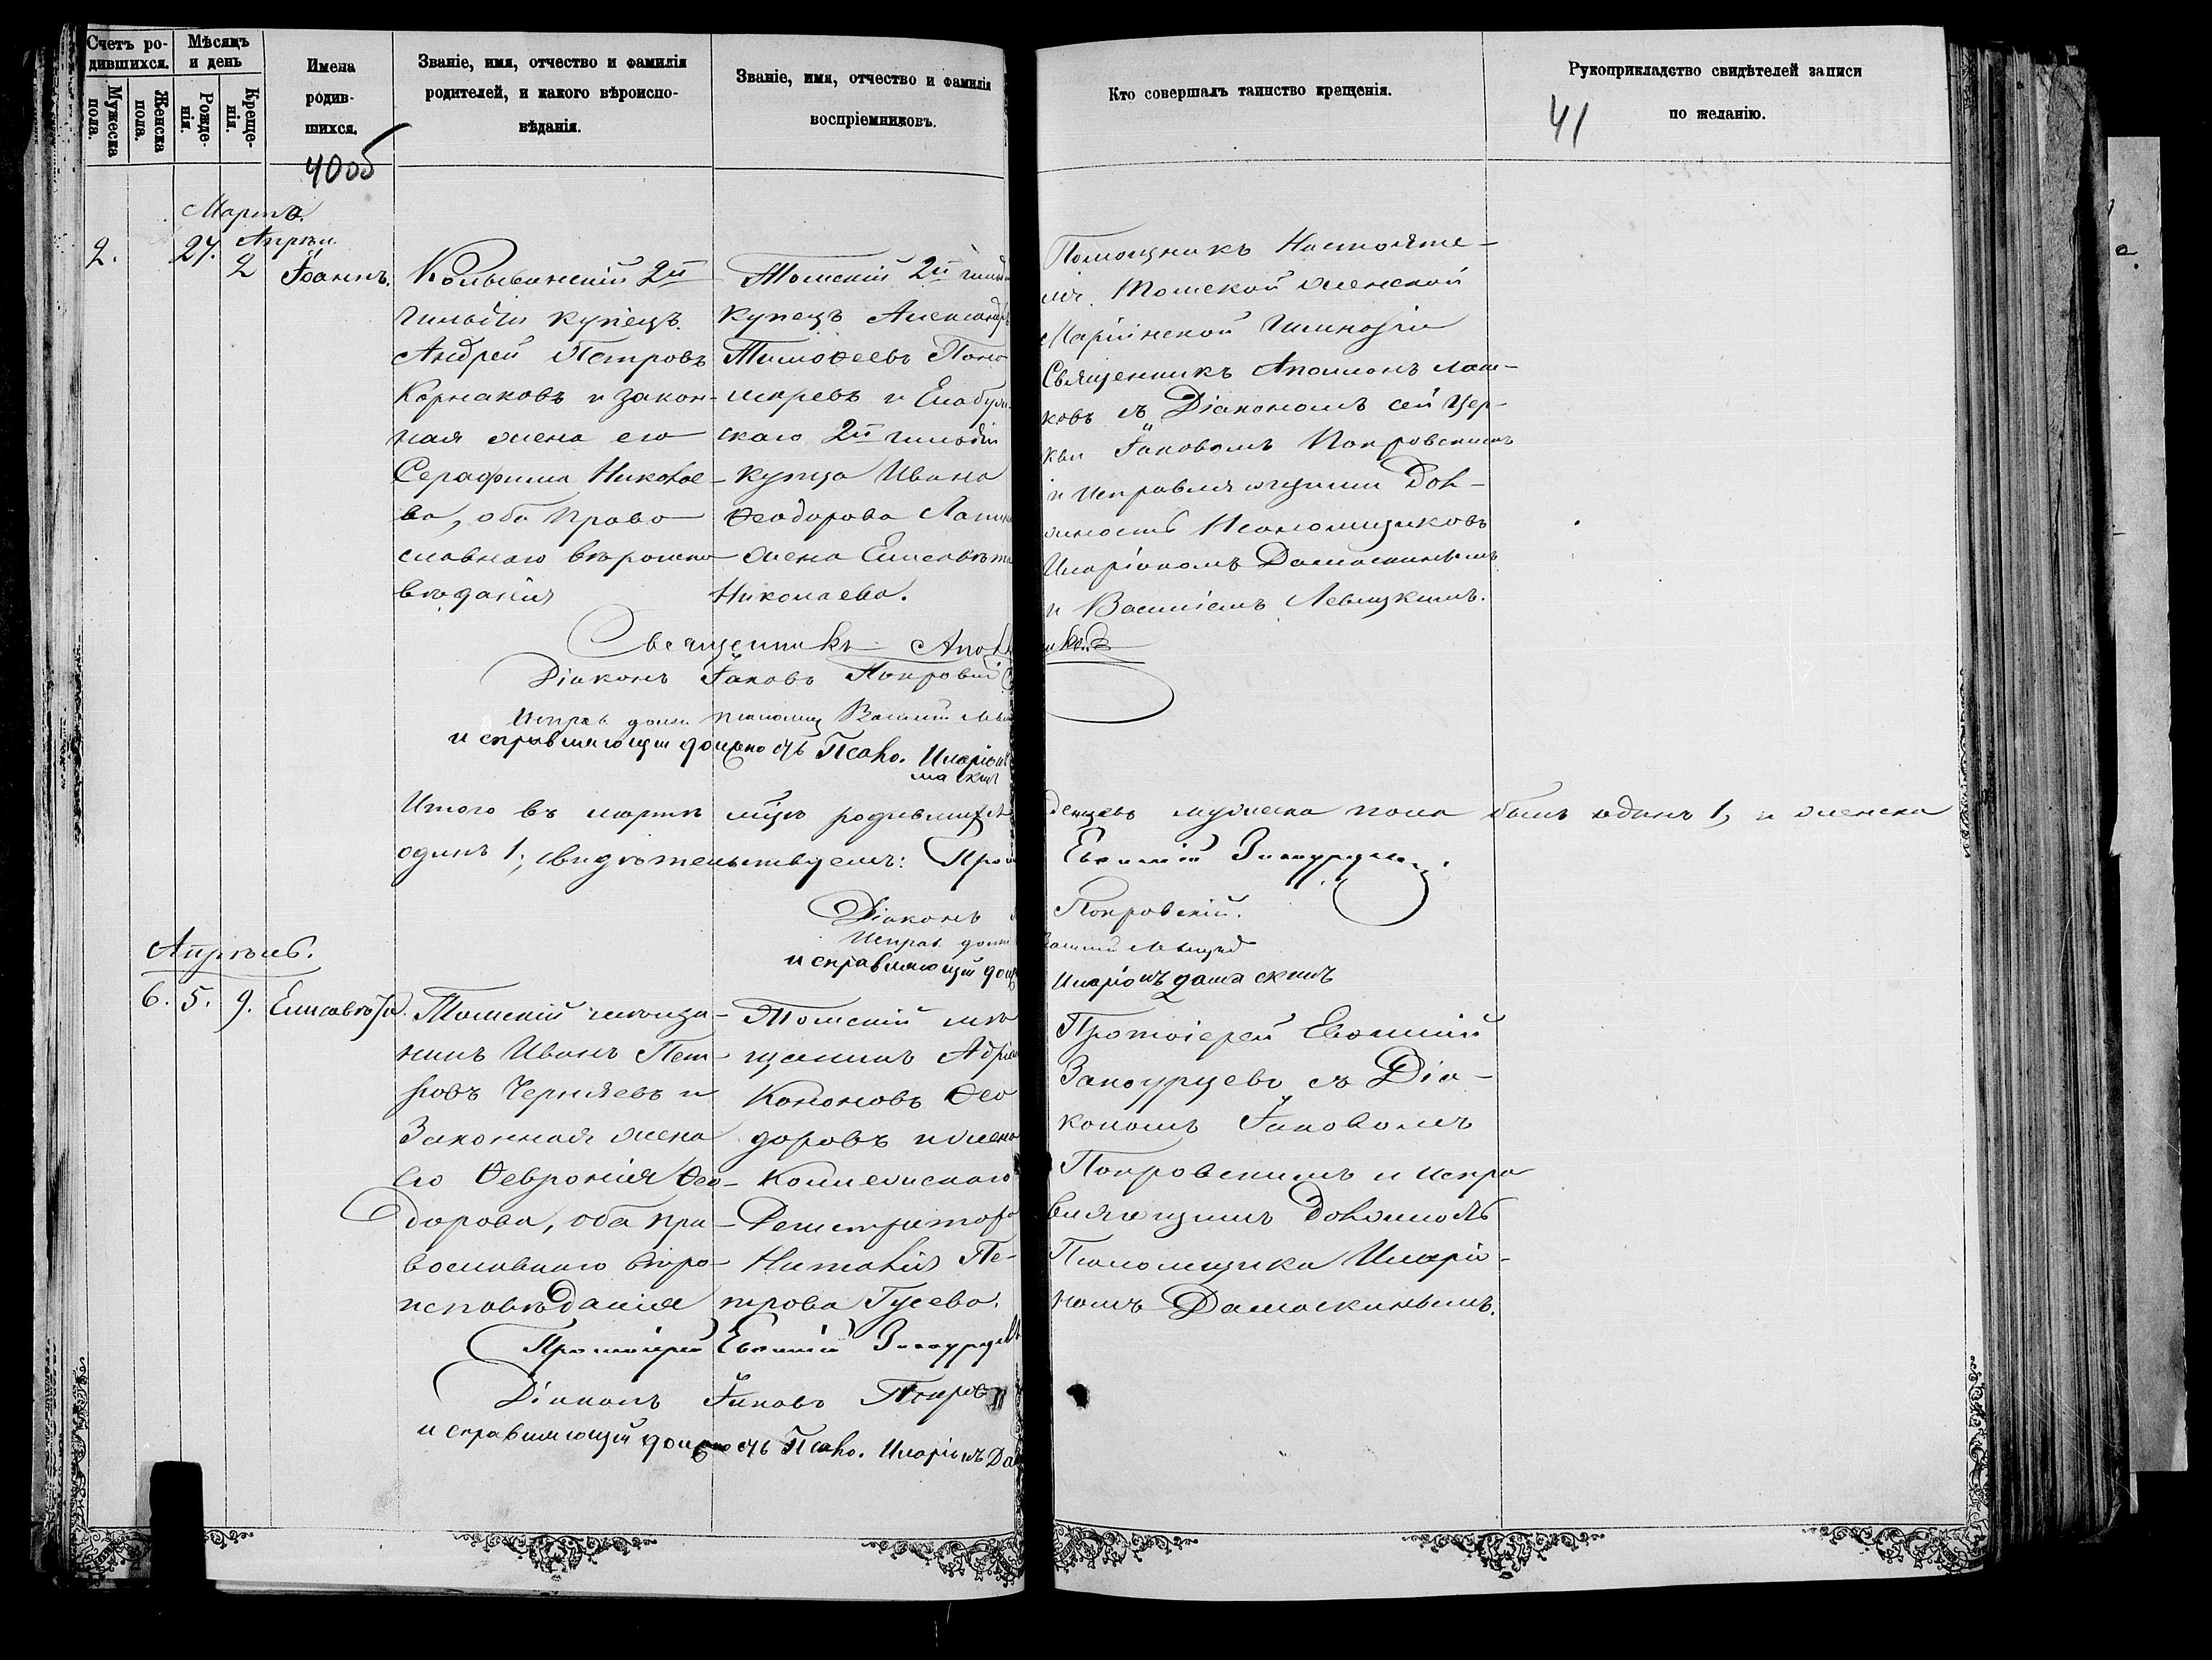 Счетъ ро-
дившихся.
Мужеска
пола.
Женска
пола.
Мѣсяцъ
и день
Рожде-
нія.
Креще-
нія.
Имена
родив-
шихся.
Званіе, имя, отчество и фамилія
родителей, и какого вѣроиспо-
вѣданія.
Званіе, имя, отчество и фамилія
воспріемниковъ.
Кто совершалъ таинство крещенія.
Рукоприкладство свидѣтелей записи
по желанію.
40об
41
Марта.
Апрѣл.
2.
27.
2
Іоаннъ.
Колыванскій 2й
гильдіи купецъ
Андрей Петровъ
Корнаковъ и закон-
ная жена его
Серафима Николае-
ва, оба право
славнаго вѣроиспо
вѣданія
Томскій 2й гильд
купецъ Александръ
Тимоѳеевъ Поно
маревъ и Елабуж-
скаго 2й гильдіи
купца Ивана
Ѳеодорова
жена Елисавѣта
Николаева.
Помощникъ Настояте-
ля Томской женской
Маріинской Гимназіи
Священникъ Аполлонъ
ковъ съ Діакономъ сей Цер-
кви Іаковомъ Покровскимъ
и Исправляющими Дол-
жность Псаломщиковъ
Иларіономъ Дамаскинымъ
и Василіемъ Левицкимъ.
Священникъ Апол
Діаконъ Іаковъ Покровскій
Исправ. долж. псаломщ Василій
исправляющій должность Псало. Иларіонъ
маскин
Итого въ мартѣ мѣцѣ родившихся
денцевъ мужеска пола былъ одинъ 1, и женска
одинъ 1; свидѣтельствуемъ: Прот
Евѳимій Закоурцевъ.
Діаконъ
Покровскій.
Исправ. долж
Василій Левицкій
исправляющій долж
Иларіонъ Дамаскинъ
Апрѣль.
6.
5.
9.
Елисавета.
Томскій мѣща-
нинъ Иванъ Пет-
ровъ Черняевъ и
Законная жена
его Ѳевронія Ѳео-
дорова, оба пра-
вославнаго вѣро-
исповѣданія
Томскій мѣ
щанинъ Адріан
Кононовъ Ѳео
доровъ и жена
Коллежскаго
Регистратора
Наталія Пе-
трова Гусева.
Протоіерей Евѳимій
Закоурцевъ съ Діа-
кономъ Іаковомъ
Покровскимъ и испра
вляющимъ Должность
Псаломщика Иларіо-
номъ Дамаскинымъ.
Протоіерей Евѳимій Закоурцевъ
Діаконъ Іаковъ Покров
исправляющій должность Псало. Иларіонъ Да